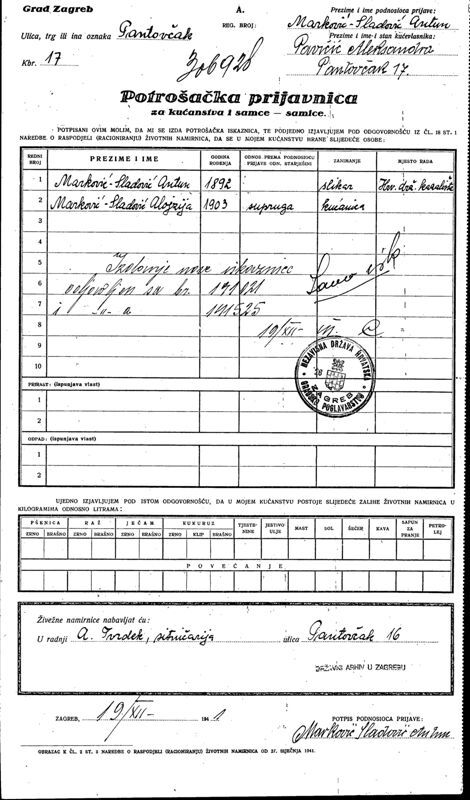 Grad Zagreb
A.
Prezime i ime podnosioca prijave:
Marković-Sladović Antun
Ulica, trg ili ina oznaka Pantovčak
REG. BROJ:
Prezime i ime i stan kućevlasnika:
Pavičić Aleksandra
Kbr. 17
Pantovčak 17.
Potrošačka prijavnica
za kućanstva i samce – samice.
POTPISANI OVIM MOLIM, DA MI SE IZDA POTROŠAČKA ISKAZNICA, TE PODJEDNO IZJAVLJUJEM POD ODGOVORNOŠĆU IZ ČL. 18 ST. 1
NAREDBE O RASPODJELI (RACIONIRANJU) ŽIVEŽNIH NAMIRNICA, DA SE U MOJEM KUĆANSTVU HRANE SLIJEDEĆE OSOBE:
REDNI BROJ PREZIME I IME GODINA ROĐENJA ODNOS. PREMA PODNOSIOCU PRIJAVE ODN. STARJEŠINI ZANIMANJE MJESTO RADA
1 Marković-Sladović Antun 1892 slikar Hrv. drž. kazalište
2 Marković-Sladović Alojzija 1903 supruga kućanica
3
4
5 Izdavanje nove iskaznice
6 sa br. 131021
7 i 191525
8 19/XII
9
10
NEZAVISNA DRŽAVA HRVATSKA
ZAGREB
GRADSKO POGLAVARSTVO
PRIRAST: (ispunjava vlast)
1
2
ODPAD: (ispunjava vlast)
1
2
UJEDNO IZJAVLJUJEM POD ISTOM ODGOVORNOŠĆU, DA U MOJEM KUĆANSTVU POSTOJE SLIJEDEĆE ZALIHE ŽIVOTNIH NAMIRNICA U
KILOGRAMIMA ODNOSNO LITRAMA:
PŠENICA RAŽ JEČAM KUKURUZ TJESTENINE JESTIVO ULJE MAST SOL ŠEĆER KAVA SAPUN ZA PRANJE PETROLEJ
ZRNO BRAŠNO ZRNO BRAŠNO ZRNO BRAŠNO ZRNO KLIP BRAŠNO
POVEĆANJE
Živežne namirnice nabavljat ću:
U radnji A. Tvrdek, sitničarija ulica Pantovčak 16
DRŽAVNI ARHIV U ZAGREBU
ZAGREB, 19/XII- 194 1
POTPIS PODNOSIOCA PRIJAVE:
Marković Sladović Antun
OBRAZAC K ČL. 2 ST. 2 NAREDBE O RASPODJELI (RACIONIRANJU) ŽIVOTNIH NAMIRNICA OD 27. SIJEČNJA 1941.